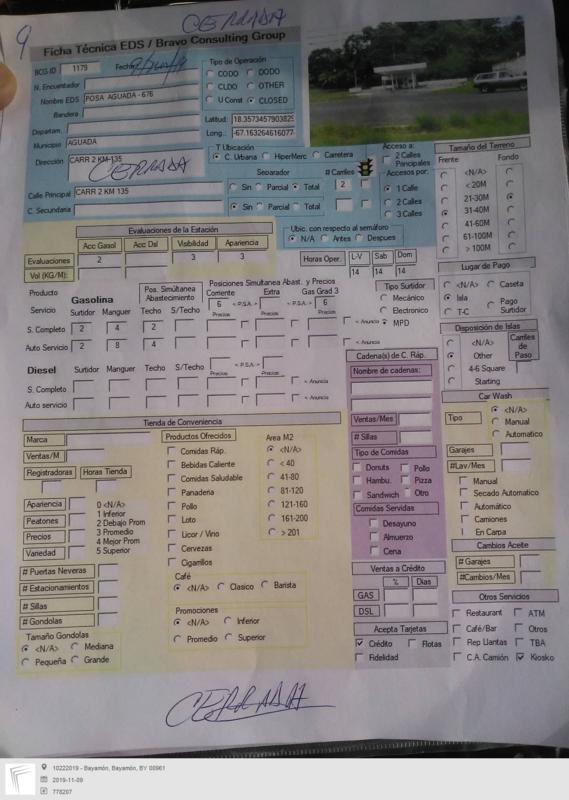 9
CERRADA
Ficha Técnica EDS / Bravo Consulting Group
BCG ID 1179 Fecha
N. Encuentador
Nombre EDS POSA AGUADA - 676
Bandera
Departam.
Municipio AGUADA
Dirección CARR 2 KM-135
CERRADA
Calle Principal CARR 2 KM 135
C. Secundaria
Tipo de Operación
CODO DODO
CLDO OTHER
U Const CLOSED
Latitud: 18.3573457903825
Long.: -67.163264616077
T Ubicación
C. Urbana HiperMerc Carretera
Separador # Carriles
Sin Parcial Total 2
Sin Parcial Total
Acceso a:
2 Calles Principales
Accesos por:
1 Calle
2 Calles
3 Calles
Tamaño del Terreno
Frente Fondo
<N/A>
< 20M
21-30M
31-40M
41-60M
61-100M
> 100M
Evaluaciones de la Estación
Acc Gasol Acc Dsl Visibilidad Apariencia
Evaluaciones 2 3 3
Vol (KG/M):
Ubic. con respecto al semáforo
N/A Antes Despues
Horas Oper. L-V Sab Dom
14 14 14
Lugar de Pago
<N/A> Caseta
Isla Pago Surtidor
T-C
Producto
Servicio
Gasolina
Pos. Simultanea Abastecimiento
Posiciones Simultanea Abast. y Precios
Corriente Extra Gas Grad 3
Surtidor Manguer Techo S/Techo 6 < P.S.A.> < P.S.A.> 6
Precios Precios
S. Completo 2 4 2 < Anuncia
Auto Servicio 2 8 4
Tipo Surtidor
Mecánico
Electronico
MPD
Disposición de Islas
<N/A>
Other
4-6 Square
Starting
Carriles de Paso
Diesel Surtidor Manguer Techo S/Techo < P.S.A.>
Precios Precios
S. Completo < Anuncia
Auto servicio < Anuncia
Cadena(s) de C. Ráp.
Nombre de cadenas:
Ventas/Mes
# Sillas
Tipo de Comidas
Donuts Pollo
Hambu. Pizza
Sandwich Otro
Comidas Servidas
Desayuno
Almuerzo
Cena
Ventas a Crédito
% Dias
GAS
DSL
Acepta Tarjetas
Crédito Flotas
Fidelidad
Car Wash
Tipo <N/A>
Manual
Automatico
Garajes
#Lav/Mes
Manual
Secado Automatico
Automático
Camiones
En Carpa
Cambios Aceite
# Garajes
#Cambios/Mes
Otros Servicios
Restaurant ATM
Café/Bar Otros
Rep Llantas TBA
C.A. Camión Kiosko
Tienda de Conveniencia
Marca
Ventas/M
Registradoras Horas Tienda
Apariencia
Peatones
Precios
Variedad
0 <N/A>
1 Inferior
2 Debajo Prom
3 Promedio
4 Mejor Prom
5 Superior
# Puertas Neveras
# Estacionamientos
# Sillas
# Gondolas
Tamaño Gondolas
<N/A> Mediana
Pequeña Grande
Productos Ofrecidos
Comidas Ráp.
Bebidas Caliente
Comidas Saludable
Panaderia
Pollo
Loto
Licor / Vino
Cervezas
Cigarrillos
Area M2
<N/A>
< 40
41-80
81-120
121-160
161-200
> 201
Café
<N/A> Clasico Barista
Promociones
<N/A> Inferior
Promedio Superior
CERRADA
10222019 - Bayamón, Bayamón, BY 00961
2019-11-09
778207